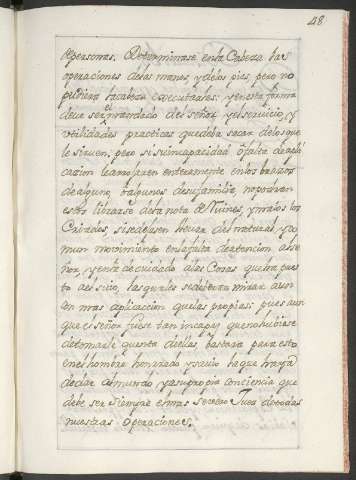 48
de personas. Determinase en la Cabeza las
operaciones de las manos, y de los pies, pero no
pudiera la cabeza executarlas; y en esta forma
deve ser el mandado del señor, y el servicio, y
vtilidades practicas que deba sacar de los que
le sirven, pero si su incapacidad ò falta de apli
cacion le arrojaren enteramente en los brazos
de alguno, ò algunos de su familia, no podran
estos librarse de la nota de Ruines, y malos los
Criados, si se dejasen llevar del natural, y co
mun movimiento en la falta de atencion al se
ñor, y en el de cuidado a las Cosas que ha pues
to a su cuidado, las quales se deberia mirar aun
con mas aplicacion que las propias; pues aun
que el señor fuese tan incapaz que no hubiese
de tomarse quenta de ellas bastara para esto
en el hombre honrado, y savio la que haya
de dar al mundo, y a su propia conciencia que
debe ser siempre el mas severo Juez de todas
nuestras operaciones.